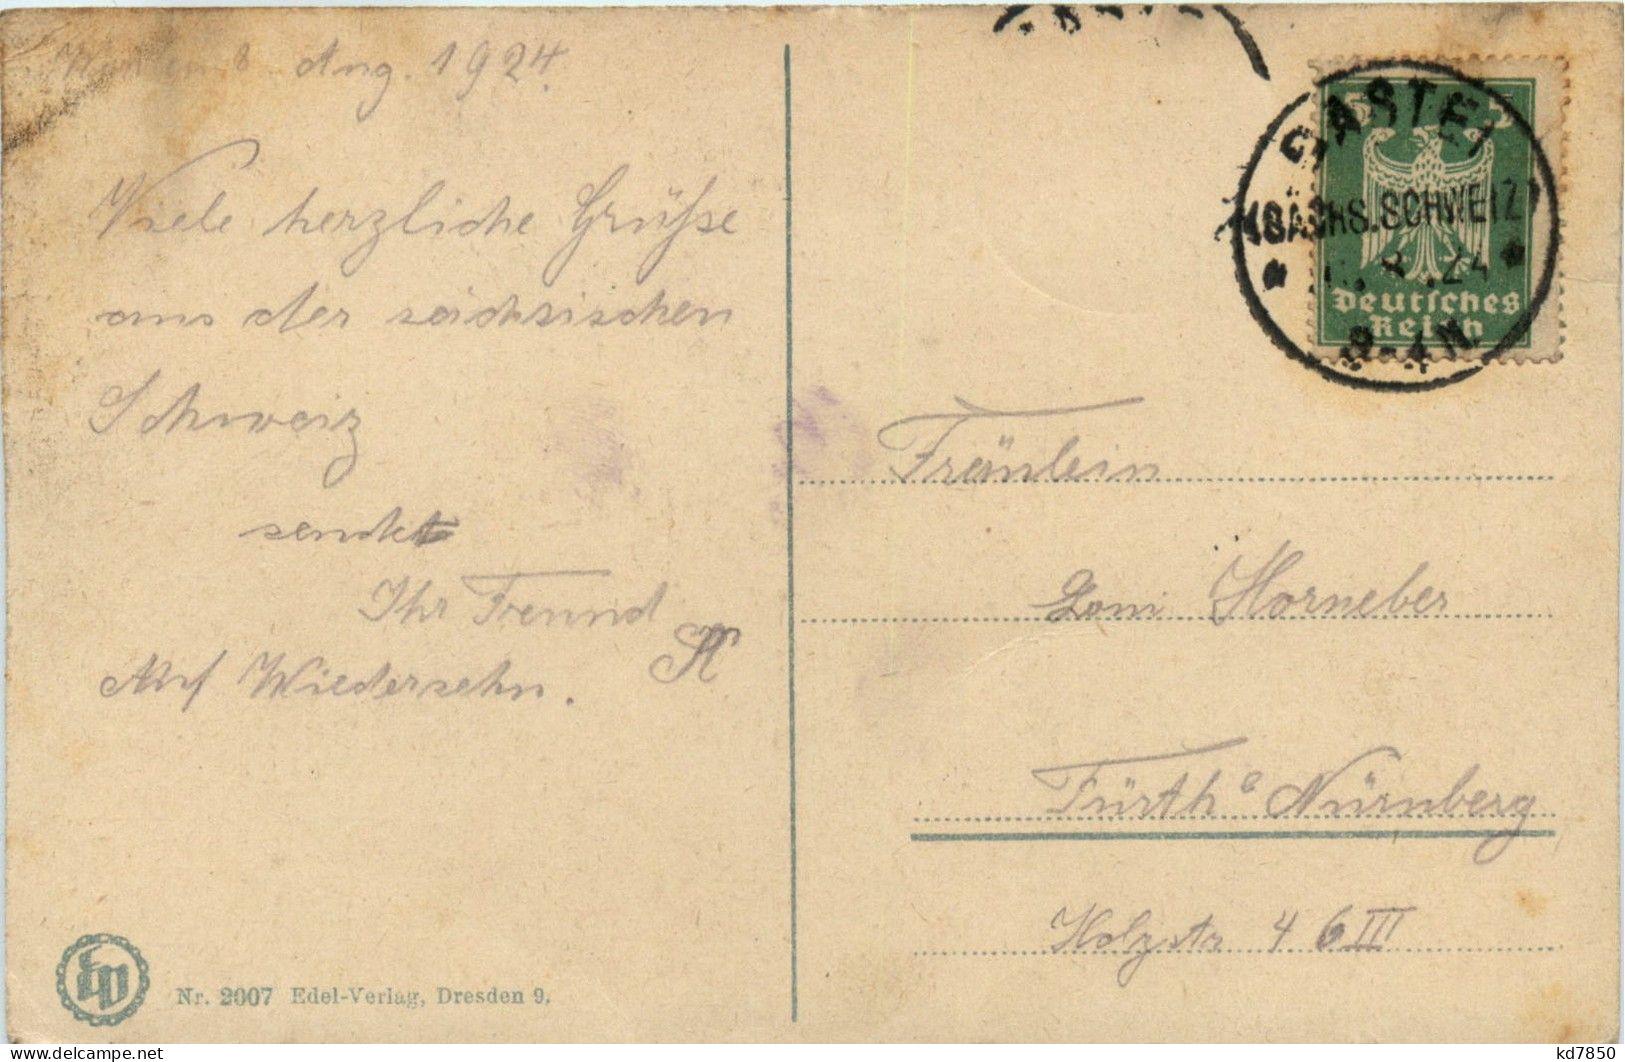 8. Aug. 1924.
Viele herzliche Grüße
aus der sächsischen
Schweiz
sendet
Ihr Freund
Auf Wiedersehn.
Nr. 2007 Edel-Verlag, Dresden 9.
BASTEI
(SÄCHS.SCHWEIZ)
8.24
5 5
Deutsches
Reich
Fräulein
Loni Horneber
Fürth b Nürnberg
Holzstr 46 III
kd7850